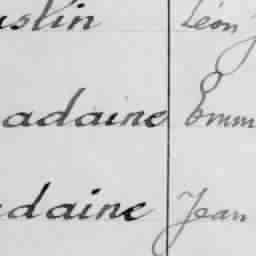 uslin Léon
adaine Emm
daine Jean